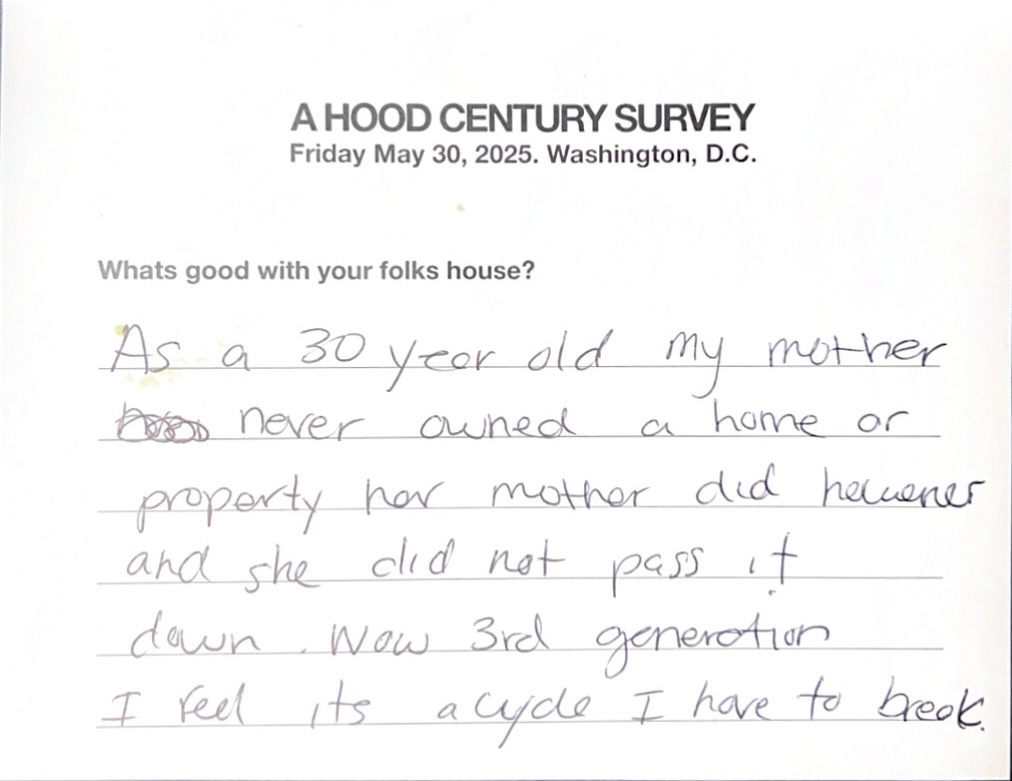 A HOOD CENTURY SURVEY
Friday May 30, 2025. Washington, D.C.
Whats good with your folks house?
As a 30 year old my mother
never owned a home or
property her mother did however
and she did not pass it
down. Now 3rd generation
I feel its a cycle I have to break.